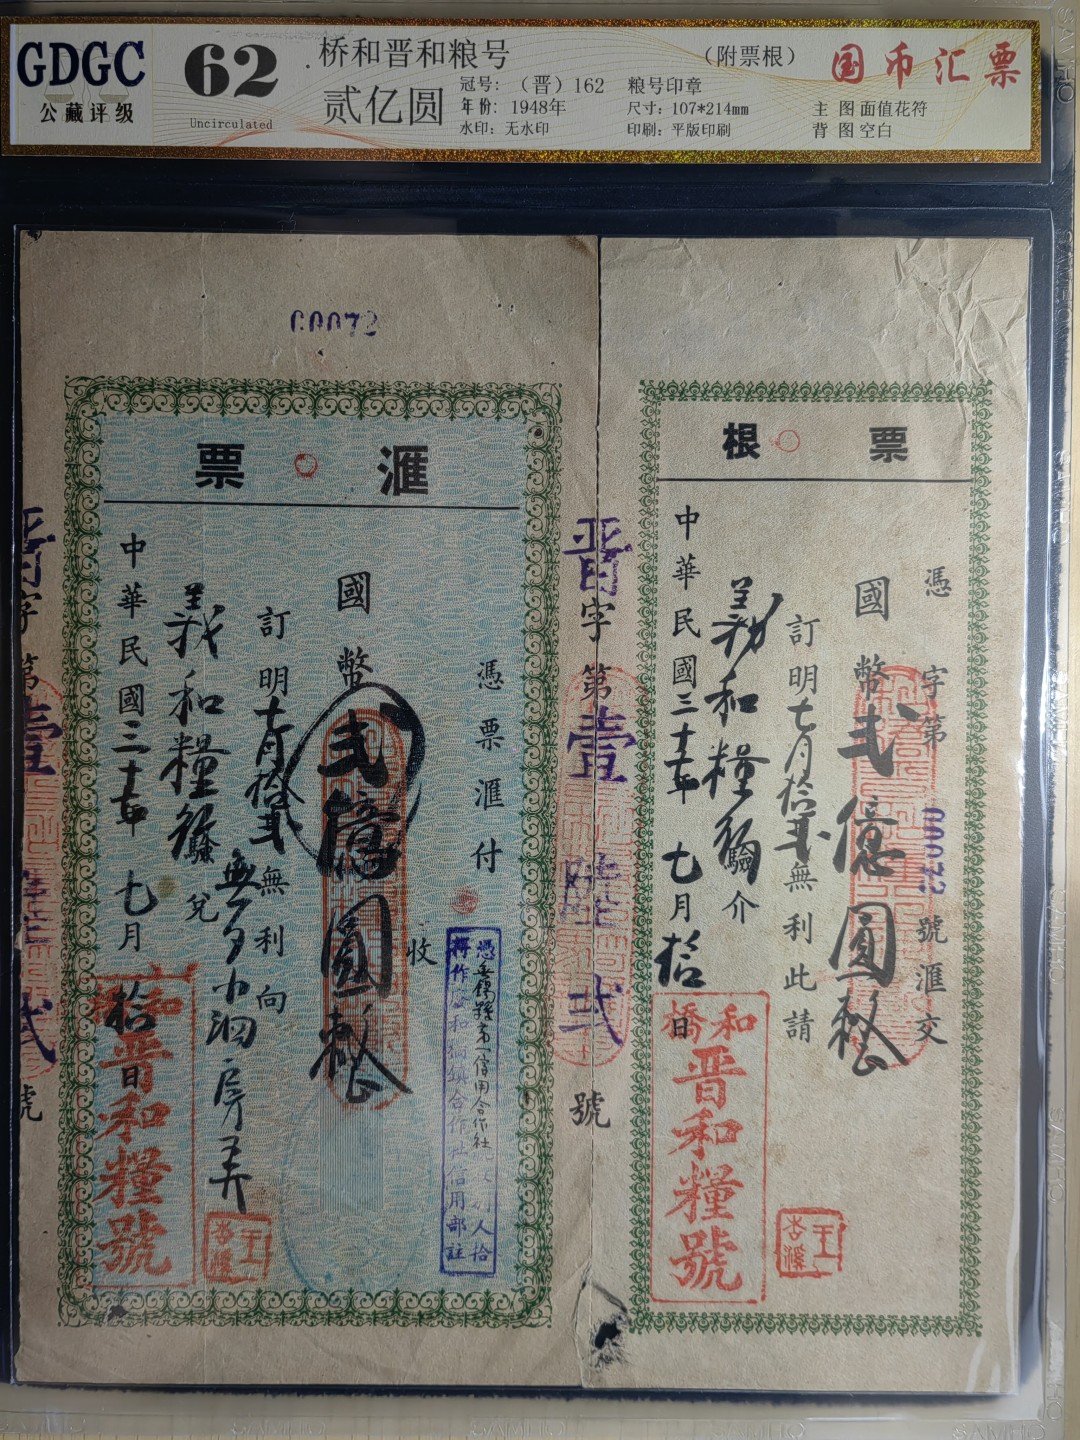 GDGC
公藏评级
62
Uncirculated
.桥和晋和粮号
贰亿圆
（附票根）
冠号：（晋）162
年份：1948年
水印：无水印
粮号印章
尺寸：107*214mm
印刷：平版印刷
国币汇票
主 图 面值花符
背 图 空白
00072
滙票
憑票滙付
國幣弍億圓
收
訂明七月拾弍無利向
義和糧號驗兌
中華民國三十七年七月拾日
晉和糧號
王杏溪
憑無錫縣第一信用合作社
晉字第壹陸弍號
票根
憑字第00072號滙交
國幣弍億圓
訂明七月拾弍無利此請
義和糧號驗介
中華民國三十七年七月拾日
和橋
晋和糧號
王杏溪
晉字第壹弍號